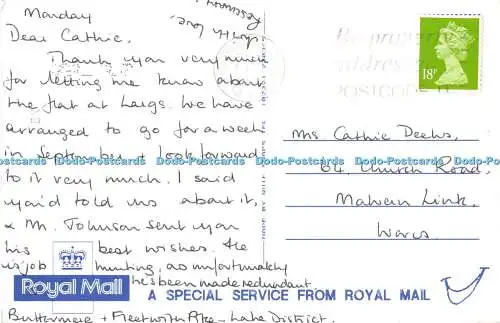 Monday
Dear Cathie,
Thank you very much
for letting me know about
the flat at Largs. We have
arranged to go for a week
in September & look forward
to it very much. I said
you'd told us about it,
& Mr. Johnson sent you
his best wishes. He
is job hunting, as unfortunately
he's been made redundant.
with love,
Rosemary
Buttermere & Fleetwith Pike - Lake District.
Royal Mail
A SPECIAL SERVICE FROM ROYAL MAIL
Be properly
addressed
POSTCODE IT
18P
Ms. Cathie Deehs,
64, Church Road,
Malvern Link,
Worcs.
Dodo-Postcards Dodo-Postcards Dodo-Postcards Dodo-Postcards Dodo-Postcards